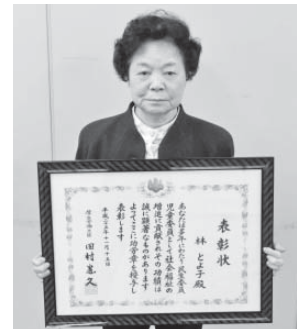 表彰状
林 とよ子殿
あなたは多年にわたり民生委員
児童委員として社会福祉の
増進に貢献されその功績は
誠に顕著なものがあります
よってここに功労章を授与し
表彰します
平成二十五年十一月十五日
厚生労働大臣 田村憲久